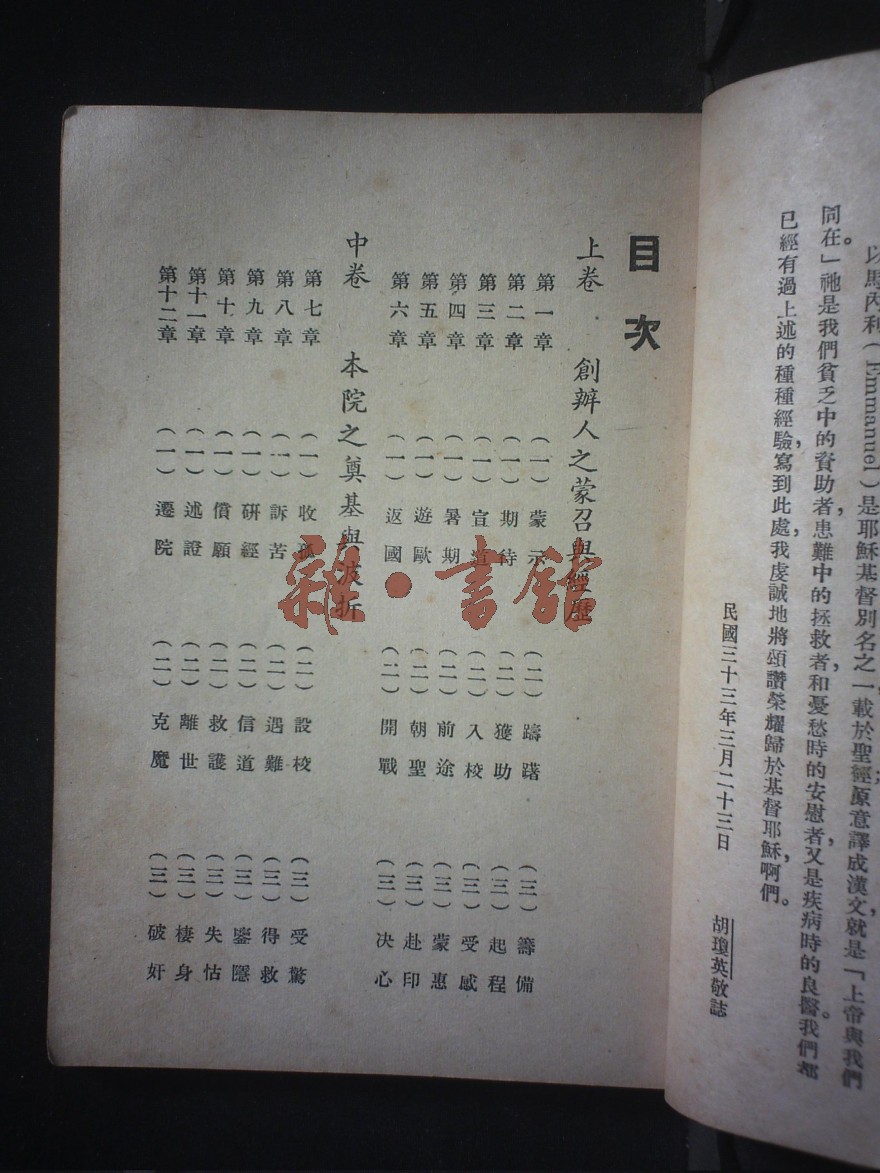 以馬內利(Emmanuel)是耶穌基督別名之一,載於聖經;原意譯成漢文,就是「上帝與我們
同在。」祂是我們貧乏中的資助者,患難中的拯救者,和憂愁時的安慰者,又是疾病時的良醫。我們都
已經有過上述的種種經驗,寫到此處,我虔誠地將頌讚榮耀歸於基督耶穌,啊們。
民國三十三年三月二十三日 胡瓊英敬誌
目次
上卷 創辦人之蒙召與經歷
第一章 (一)蒙示 (二)躊躇 (三)籌備
第二章 (一)期待 (二)獲助 (三)起程
第三章 (一)宣道 (二)入校 (三)受感
第四章 (一)暑期 (二)前途 (三)蒙惠
第五章 (一)遊歐 (二)朝聖 (三)赴印
第六章 (一)返國 (二)開戰 (三)決心
中卷 本院之奠基與波折
第七章 (一)收孤 (二)設校 (三)受驚
第八章 (一)訴苦 (二)遇難 (三)得救
第九章 (一)研經 (二)信道 (三)鑒隱
第十章 (一)償願 (二)救護 (三)失怙
第十一章 (一)述證 (二)離世 (三)棲身
第十二章 (一)遷院 (二)克魔 (三)破奸
雜·書館